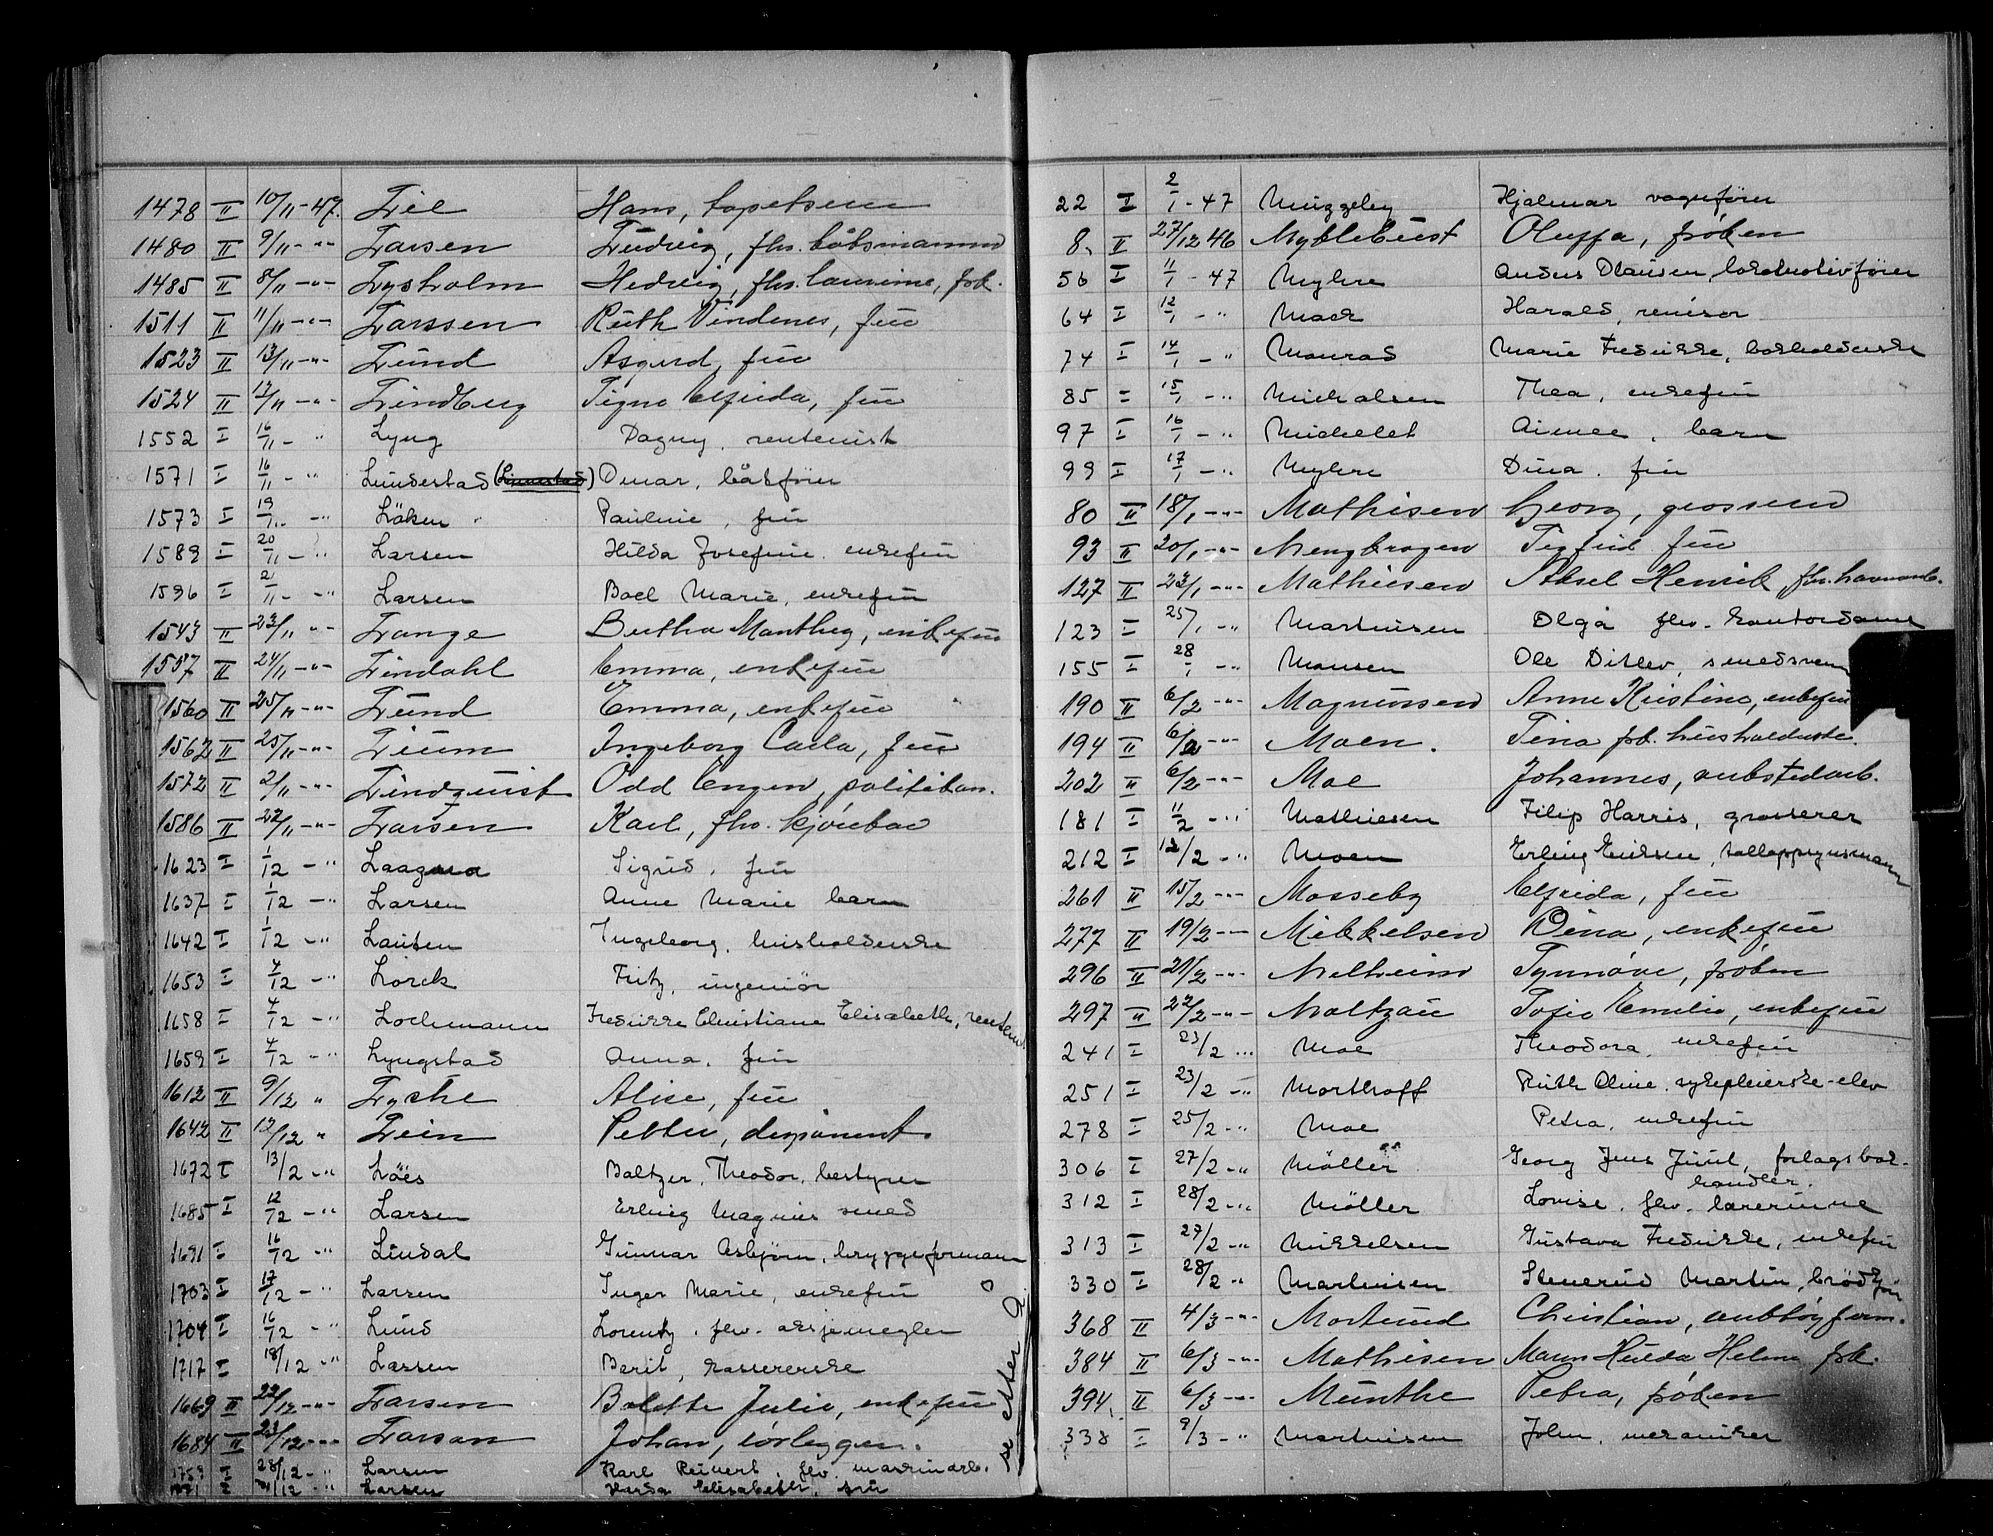 1478 II 10/11-47. Lie Hans, tapetserer
1480 II 9/11 -"- Larsen Ludvig, fhv. båtsmann
1485 II 8/11 -"- Lysholm Hedvig, fhv. lærerinne, frk.
1511 II 11/11 -"- Larssen Ruth Vindenes, fru
1523 II 13/11 -"- Lund Asgerd, fru
1524 II 12/11 -"- Lindberg Signe Elfrida, fru
1552 I 16/11 - " Lyng Dagny, rentenist
1571 I 16/11 - " Lundestad (Linnestad) Omar, båtfører
1573 I 19/11 - " Löken Pauline, fru
1589 I 20/11 - " Larsen Hilda Josefine, enkefru
1596 I 21/11 - " Larsen Boel Marie, enkefru
1543 II 23/11 -"- Lange Bertha Manthey, enkefru
1557 II 24/11 -"- Lindahl Emma, enkefru
1560 II 25/11 -"- Lund Emma, enkefru
1562 II 25/11 -"- Lium Ingeborg Carla, fru
1572 II 2/11 -"- Lindquist Odd Engen, politikon.
1586 II 22/11 -"- Larsen Karl, fhv. kjörekar
1623 I 1/12 - " Laagma Sigrid, fru
1637 I 1/12 - " Larsen Anne Marie barn
1642 I 1/12 - " Lauten Ingeborg, husholderske
1653 I 4/12 - " Lorck Fritz, ingeniör
1658 I 4/12 - " Lochmann Fredrikke Christiane Elisabeth, rentenist
1659 I 4/12 - " Lyngstad Anna, fru
1612 II 9/12 " Lyche Alise, fru
1642 II 12/12 " Lein Petter, disponent
1672 I 13/12 - " Löes Baltzer, Theodor, bestyrer
1685 I 12/12 - " Larsen Erling Magnus smed
1691 I 16/12 - " Lindal Gunnar Asbjörn, bryggeformann
1703 I 17/12 - " Larsen Inger Marie, enkefru
1704 I 16/12 - " Lund Lorentz, fhv. aksjemegler
1717 I 18/12 - " Larsen Berit, kassererske
1669 II 22/12 -"- Larsen Bolette Julie, enkefru
1684 II 23/12 -"- Larsen Johan, rörlegger.
1759 I 28/12 - " Larsen Karl Reinert, fhv. maskinarb.
I /12 - " Larsen Elisabeth, fru
se etter Q
22 I 2/1 - 47 Muggeby Hjalmar vognförer
8. II 27/12 46 Myklebust Oluffa, fröken
56 I 11/1 - 47 Myhre Anders Olausen, lokomotivförer
64 I 12/1 - " Mack Harald, revisor
74 I 14/1 - " Monrad Marie Fredrikke, bokholderske
85 I 15/1 - " Michalsen Thea, enkefru
97 I 16/1 - " Michelet Aimee, barn
99 I 17/1 - " Myhre Dina, fru
80 II 18/1 -"- Mathisen Georg, grosserer
93 II 20/1 -"- Mengbragen Sigfrid fru
127 II 23/1 -"- Mathiesen Aksel Henrik, fhv. havnearb.
123 I 25/1 - " Martinsen Olga fhv. kontordame
155 I 28/1 - " Monsen Ole Ditlev, smedsvenn
190 II 6/2 -"- Magnussen Anne Kristine, enkefru
194 II 6/2 -"- Moen. Tina frk. husholderske.
202 II 6/2 -"- Moe Johannes, verkstedarb.
181 I 11/2 - " Mathiesen Filip Harris, grosserer
212 I 12/2 - " Moen Erling Eriksen, tolloppsynsmann
261 II 15/2 -"- Mosseby Elfrida, fru
277 II 19/2 -"- Mikkelsen Dina, enkefru
296 II 21/2 -"- Melheim Synnöve, fröken
297 II 22/2 -"- Moltzau Sofie Emilie, enkefru
241 I 23/2 - " Moe Theodora, enkefru
251 I 23/2 - " Morthoff Ruth Oline, sykepleierske-elev
278 I 25/2 - " Moe Petra, enkefru
306 I 27/2 - " Möller Georg Jens Juul, forlagsbok-
handler.
312 I 28/2 - " Möller Lovise, fhv. lærerinne
313 I 27/2 - " Mikkelsen Gustava Fredrikke, enkefru
330 I 28/2 - " Martinsen Stenerud Martin, brödkj.
368 II 4/3 -"- Mortund Christian, verktöyform.
384 II 6/3 -"- Mathisen Maren Hulda Helene frk.
394. II 6/3 -"- Munthe Petra, fröken
338 I 9/3 - " Martinsen John, mekaniker